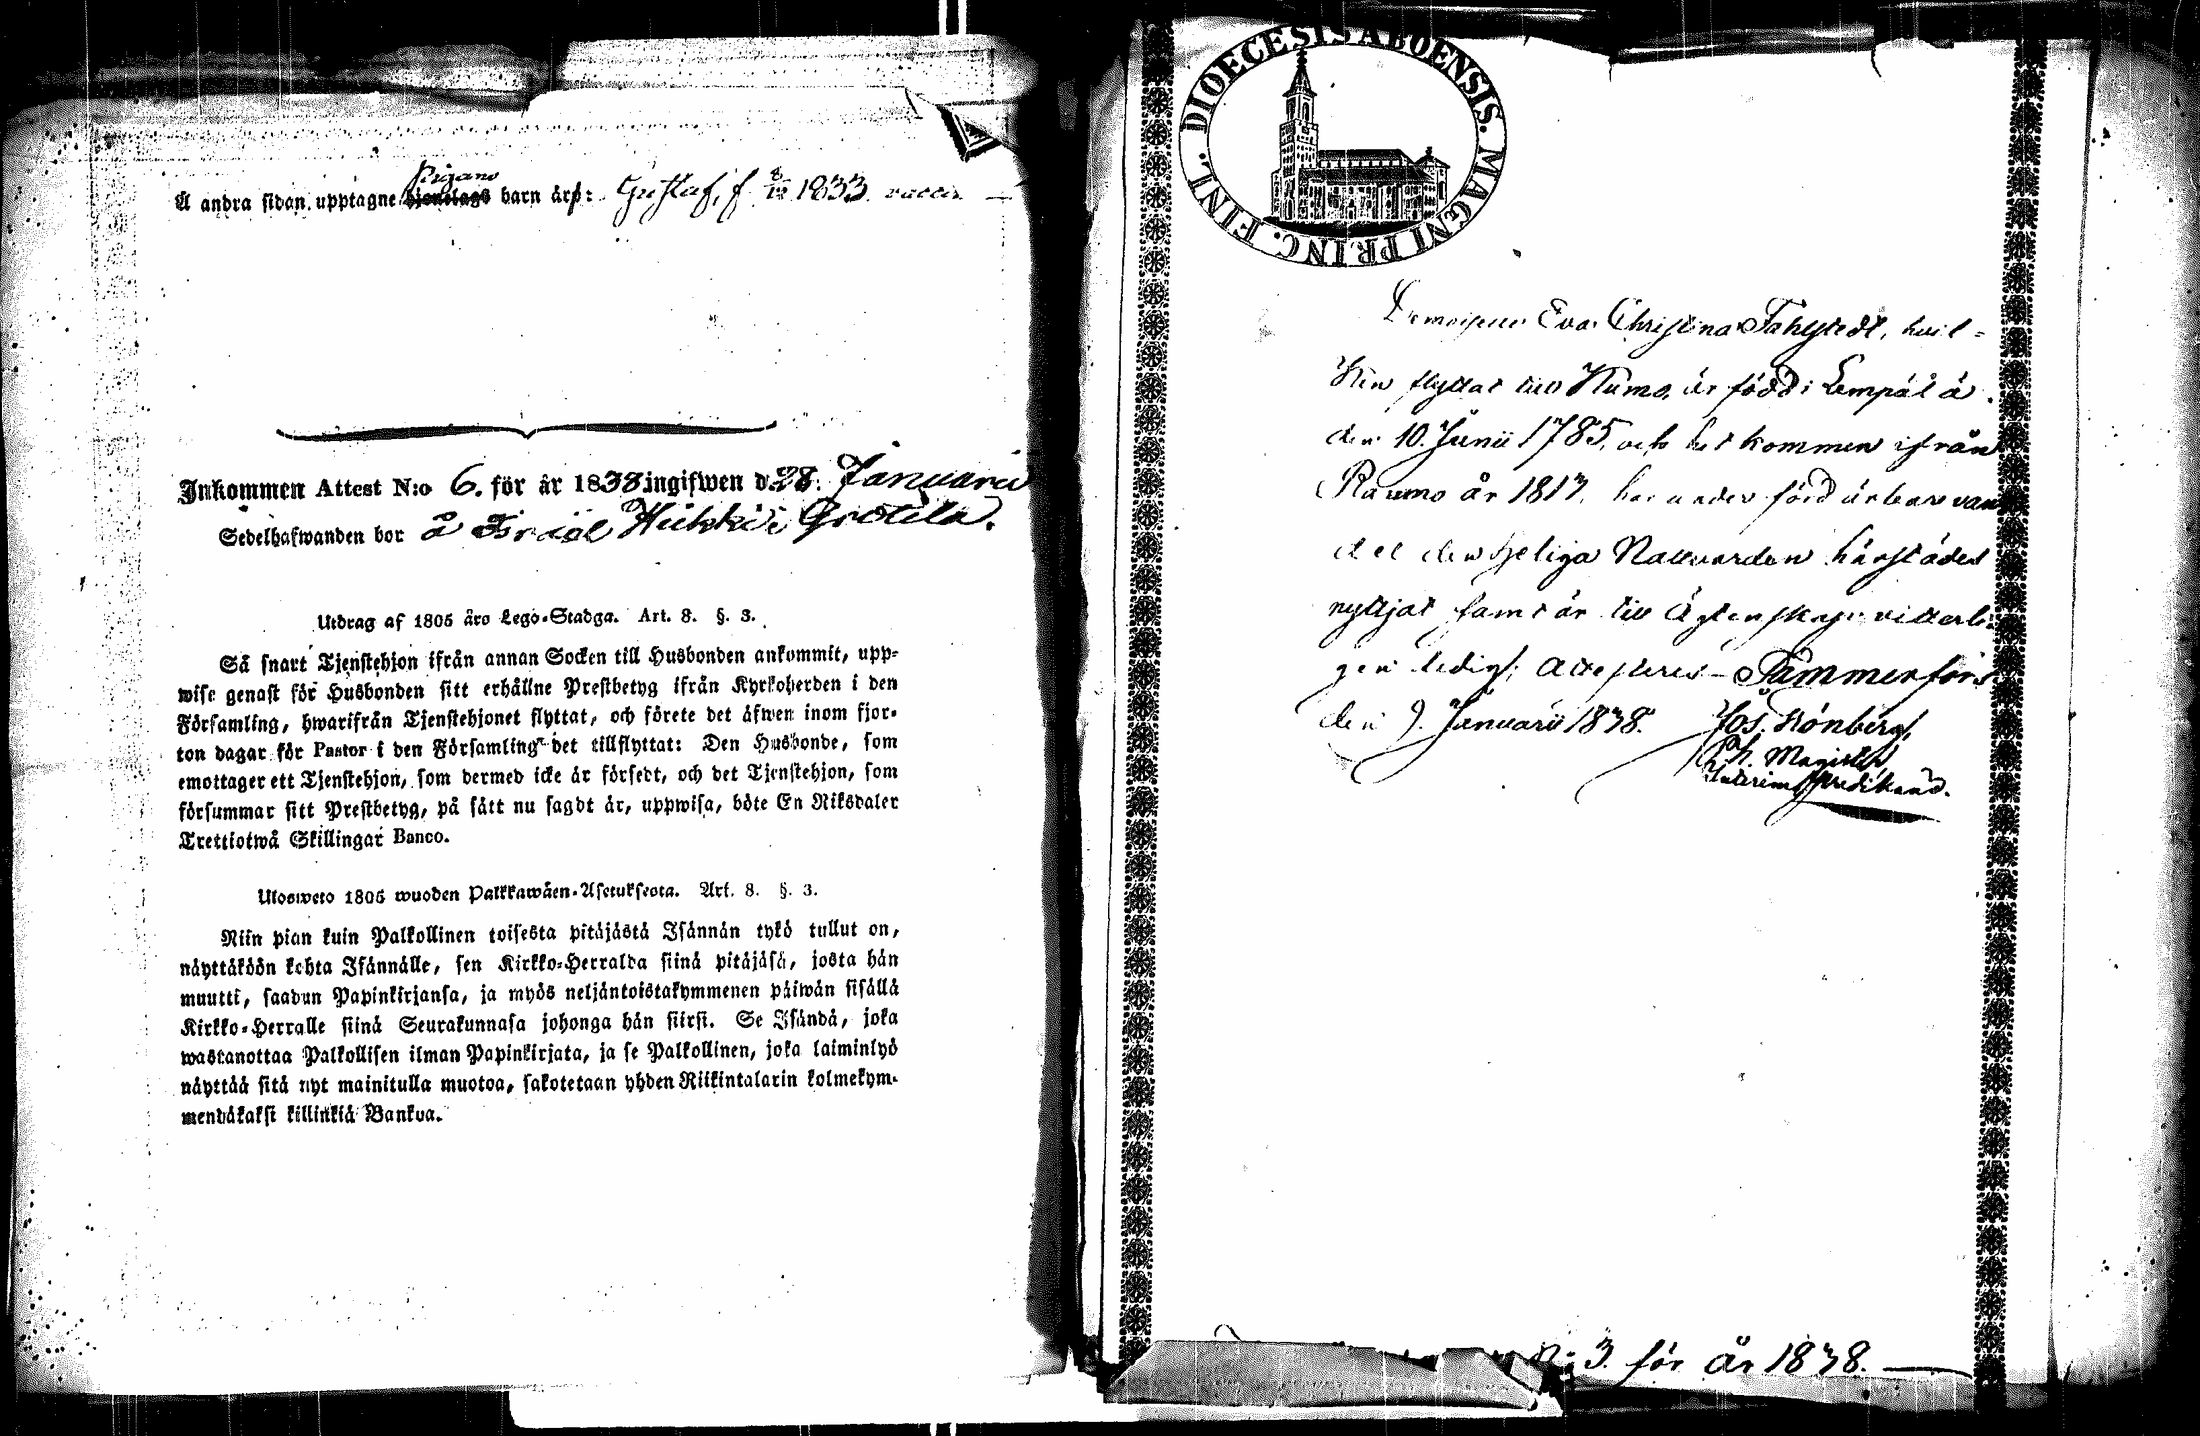 Pigans
Å andra sidan upptagne tjenstlags barn äro: Gustaf, f. 8/12 1833. vaccin.
Inkommen Attest N:o 6. för år 1838 ingifwen d. 28. Januarii
Sedelhafwanden bor å Israël Heikki i Grötila.
Utdrag af 1805 års Lego-Stadga. Art. 8. §. 3.
Så snart Tjenstehjon ifrån annan Socken till Husbonden ankommit, upp-
wise genast för Husbonden sitt erhållne Prestbetyg ifrån Kyrkoherden i den
Församling, hwarifrån Tjenstehjonet flyttat, och förete det äfwen inom fjor-
ton dagar för Pastor i den Församling det tillflyttat: Den Husbonde, som
emottager ett Tjenstehjon, som dermed icke är försedt, och det Tjenstehjon, som
försummar sitt Prestbetyg, på sätt nu sagdt är, uppwisa, böte En Riksdaler
Trettiotwå Skillingar Banco.
Ulosweto 1805 wuoden Palkkawäen-Asetuksesta. Art. 8. §. 3.
Niin pian kuin Palkollinen toisesta pitäjästä Isännän tykö tullut on,
näyttäköön kohta Isännälle, sen Kirkko-Herralda siinä pitäjäsä, josta hän
muutti, saadun Papinkirjansa, ja myös neljäntoistakymmenen päiwän sisällä
Kirkko-Herralle siinä Seurakunnasa johonga hän siirsi. Se Isändä, joka
wastanottaa Palkollisen ilman Papinkirjata, ja se Palkollinen, joka laiminlyö
näyttää sitä nyt mainitulla muotoa, sakotetaan yhden Riikintalarin kolmekym-
mendäkaksi killinkiä Bankoa.
DIOECESIS ABOENSIS. MAGNI PRINC. FINL.
Demoiselle Eva Christina Tahlstedt, hvil-
ken flyttat till Kumo, är född i Lempälä
den 10. Junii 1785, och hit kommen ifrån
Raumo år 1817, har under förd ärbar van-
del den Heliga Nattvarden härstädes
nyttjat samt är till Ägtenskap vitterli-
gen ledig; Attesteres – Tammerfors
den 9. Januarii 1838. Jos. Grönberg,
Ph. Magister
Interims Predikand.
N: 3. för år 1838.